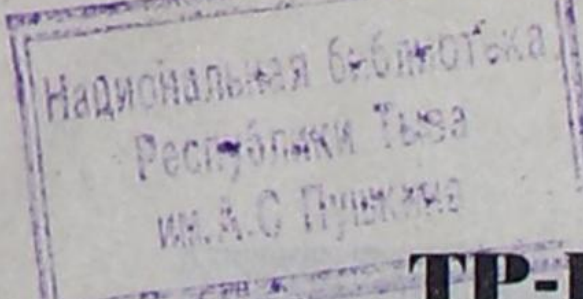 Национальная библиотека
Республики Тыва
им. А.С Пушкина
ТР-